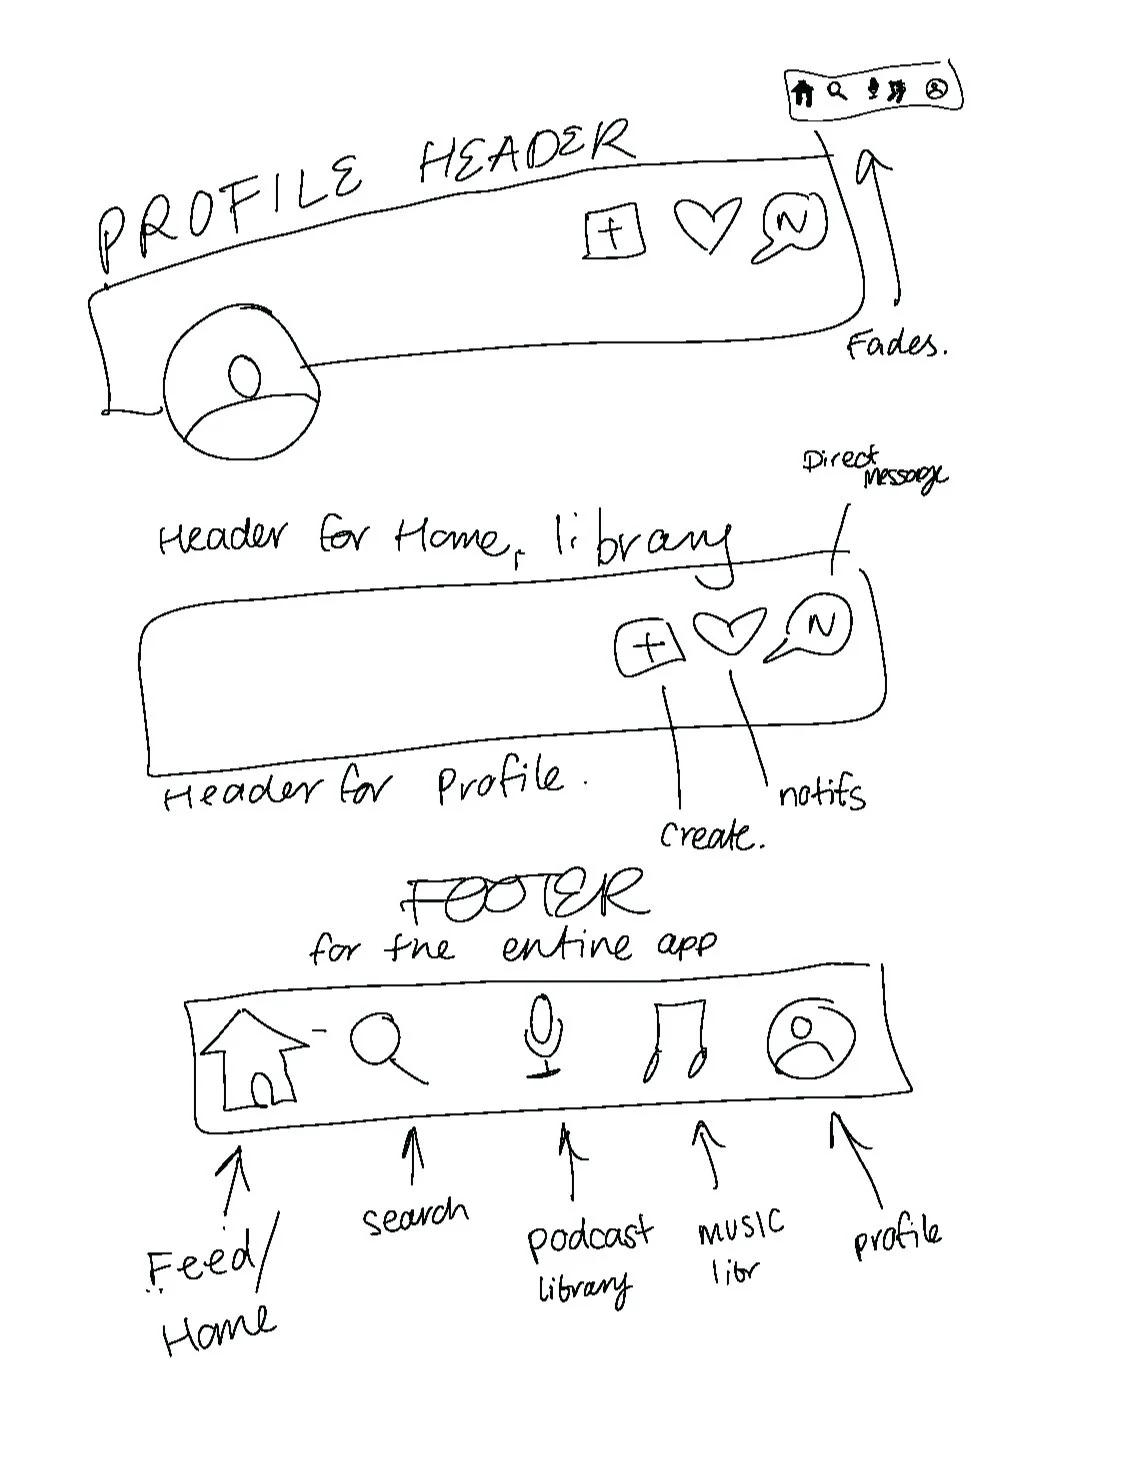 PROFILE HEADER
N
Fades.
Direct
Message
Header for Home, library
N
Header for Profile.
notifs
Create.
FOOTER
for the entire app
Feed/
Home
search
podcast
library
MUSIC
libr
profile